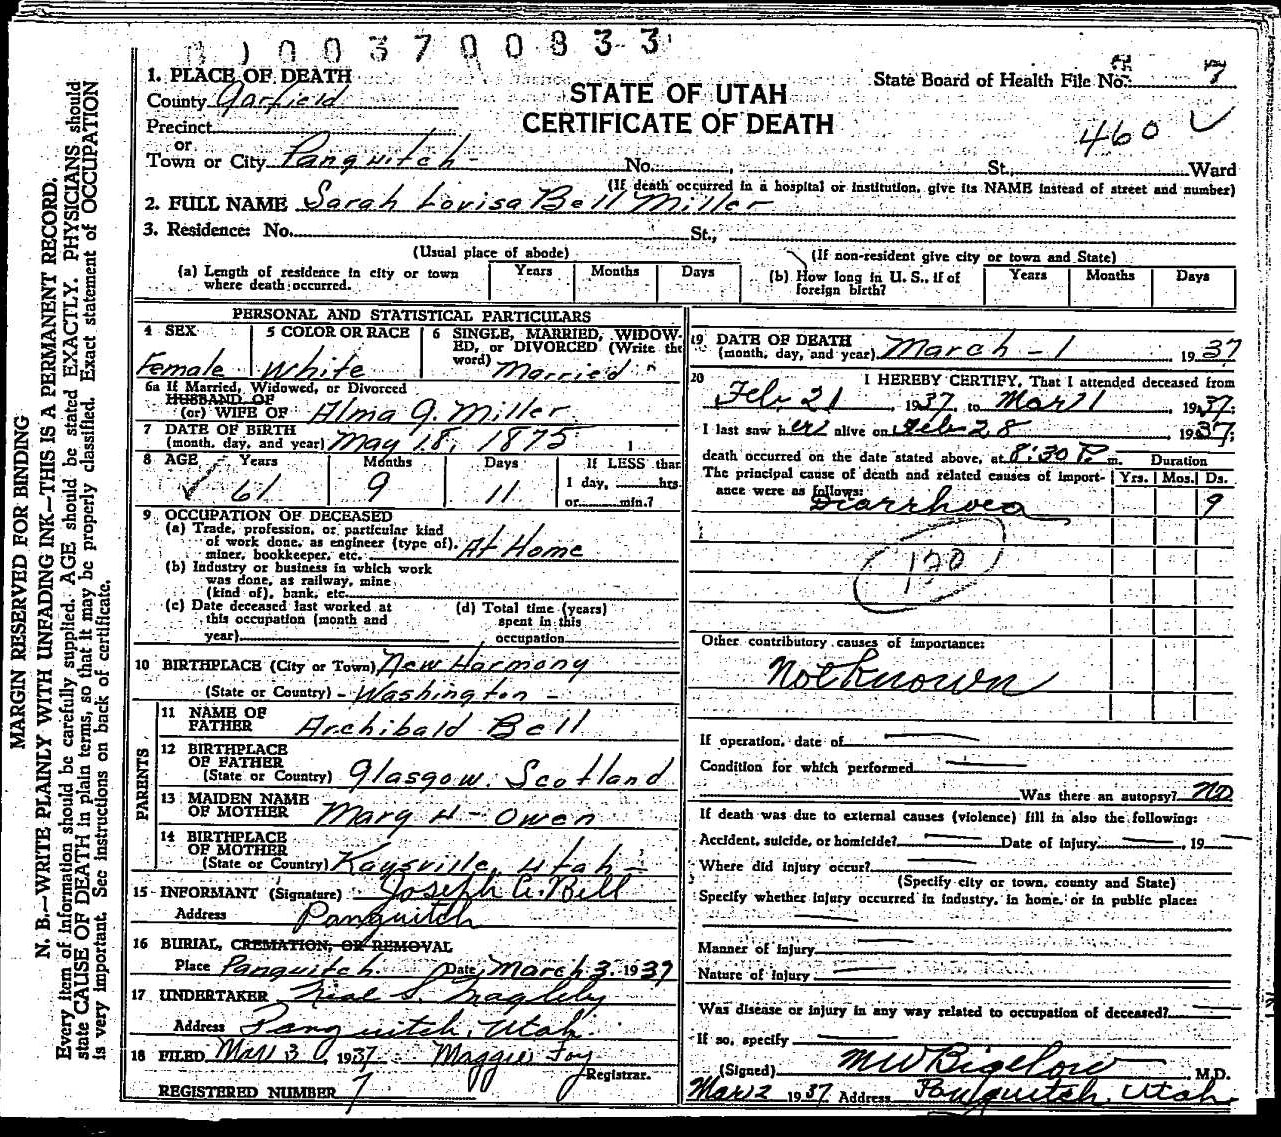 003700833
1. PLACE OF DEATH
County Garfield
Precinct
or
Town or City Panguitch - No. , St., Ward
State Board of Health File No. 7
STATE OF UTAH
CERTIFICATE OF DEATH
460
(If death occurred in a hospital or institution, give its NAME instead of street and number)
2. FULL NAME Sarah Lovisa Bell Miller
3. Residence: No. St.,
(Usual place of abode) (If non-resident give city or town and State)
(a) Length of residence in city or town where death occurred. Years Months Days
(b) How long in U. S., if of foreign birth? Years Months Days
PERSONAL AND STATISTICAL PARTICULARS
4 SEX 5 COLOR OR RACE 6 SINGLE, MARRIED, WIDOWED, or DIVORCED (Write the word)
Female White Married
6a If Married, Widowed, or Divorced
HUSBAND OF
(or) WIFE OF Alma G. Miller
7 DATE OF BIRTH
(month, day, and year) May 18, 1875
8 AGE Years Months Days If LESS than
61 9 11 1 day, hrs
or min.?
9 OCCUPATION OF DECEASED
(a) Trade, profession, or particular kind
of work done, as engineer (type of),
miner, bookkeeper, etc. At Home
(b) Industry or business in which work
was done, as railway, mine
(kind of), bank, etc.
(c) Date deceased last worked at
this occupation (month and
year)
(d) Total time (years)
spent in this
occupation
10 BIRTHPLACE (City or Town) New Harmony
(State or Country) - Washington -
PARENTS
11 NAME OF
FATHER Archibald Bell
12 BIRTHPLACE
OF FATHER
(State or Country) Glasgow. Scotland
13 MAIDEN NAME
OF MOTHER Mary H - Owen
14 BIRTHPLACE
OF MOTHER
(State or Country) Kaysville, Utah -
15 INFORMANT (Signature) Joseph A. Bell
Address Panguitch
16 BURIAL, CREMATION, OR REMOVAL
Place Panguitch Date March 3. 1937
17 UNDERTAKER Neal S. Magleby
Address Panguitch, Utah.
18 FILED Mar 3, 1937 Maggie Foy
Registrar.
REGISTERED NUMBER 7
19 DATE OF DEATH
(month, day, and year) March - 1 1937
20 I HEREBY CERTIFY, That I attended deceased from
Feb 21, 1937, to Mar 1, 1937;
I last saw her alive on Feb 28, 1937;
death occurred on the date stated above, at 8:30 P. m. Duration
The principal cause of death and related causes of importance were as follows: Yrs. Mos. Ds.
Diarrhoea 9
120
Other contributory causes of importance:
Not Known
If operation, date of
Condition for which performed
Was there an autopsy? No
If death was due to external causes (violence) fill in also the following:
Accident, suicide, or homicide? Date of injury , 19
Where did injury occur?
(Specify city or town, county and State)
Specify whether injury occurred in industry, in home, or in public place:
Manner of injury
Nature of injury
Was disease or injury in any way related to occupation of deceased?
If so, specify
(Signed) M W Bigelow M.D.
Mar 2 1937 Address Panguitch, Utah.
MARGIN RESERVED FOR BINDING
N. B.—WRITE PLAINLY WITH UNFADING INK—THIS IS A PERMANENT RECORD.
Every item of information should be carefully supplied. AGE should be stated EXACTLY. PHYSICIANS should
state CAUSE OF DEATH in plain terms, so that it may be properly classified. Exact statement of OCCUPATION
is very important. See instructions on back of certificate.